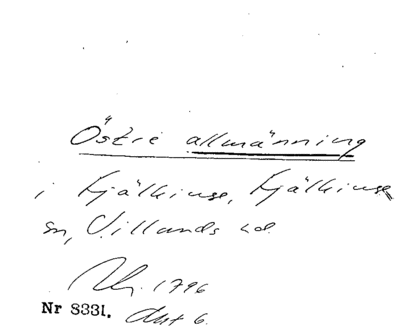 Östre allmänning
i Fjälkinge, Fjälkinge
sn, Villands hd.
1796
Nr 8331. Akt 6.